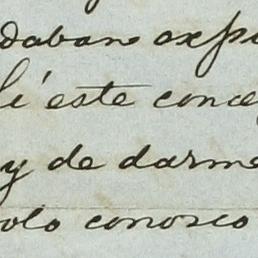 daban exp
li este conce
y de darme
olo conosco